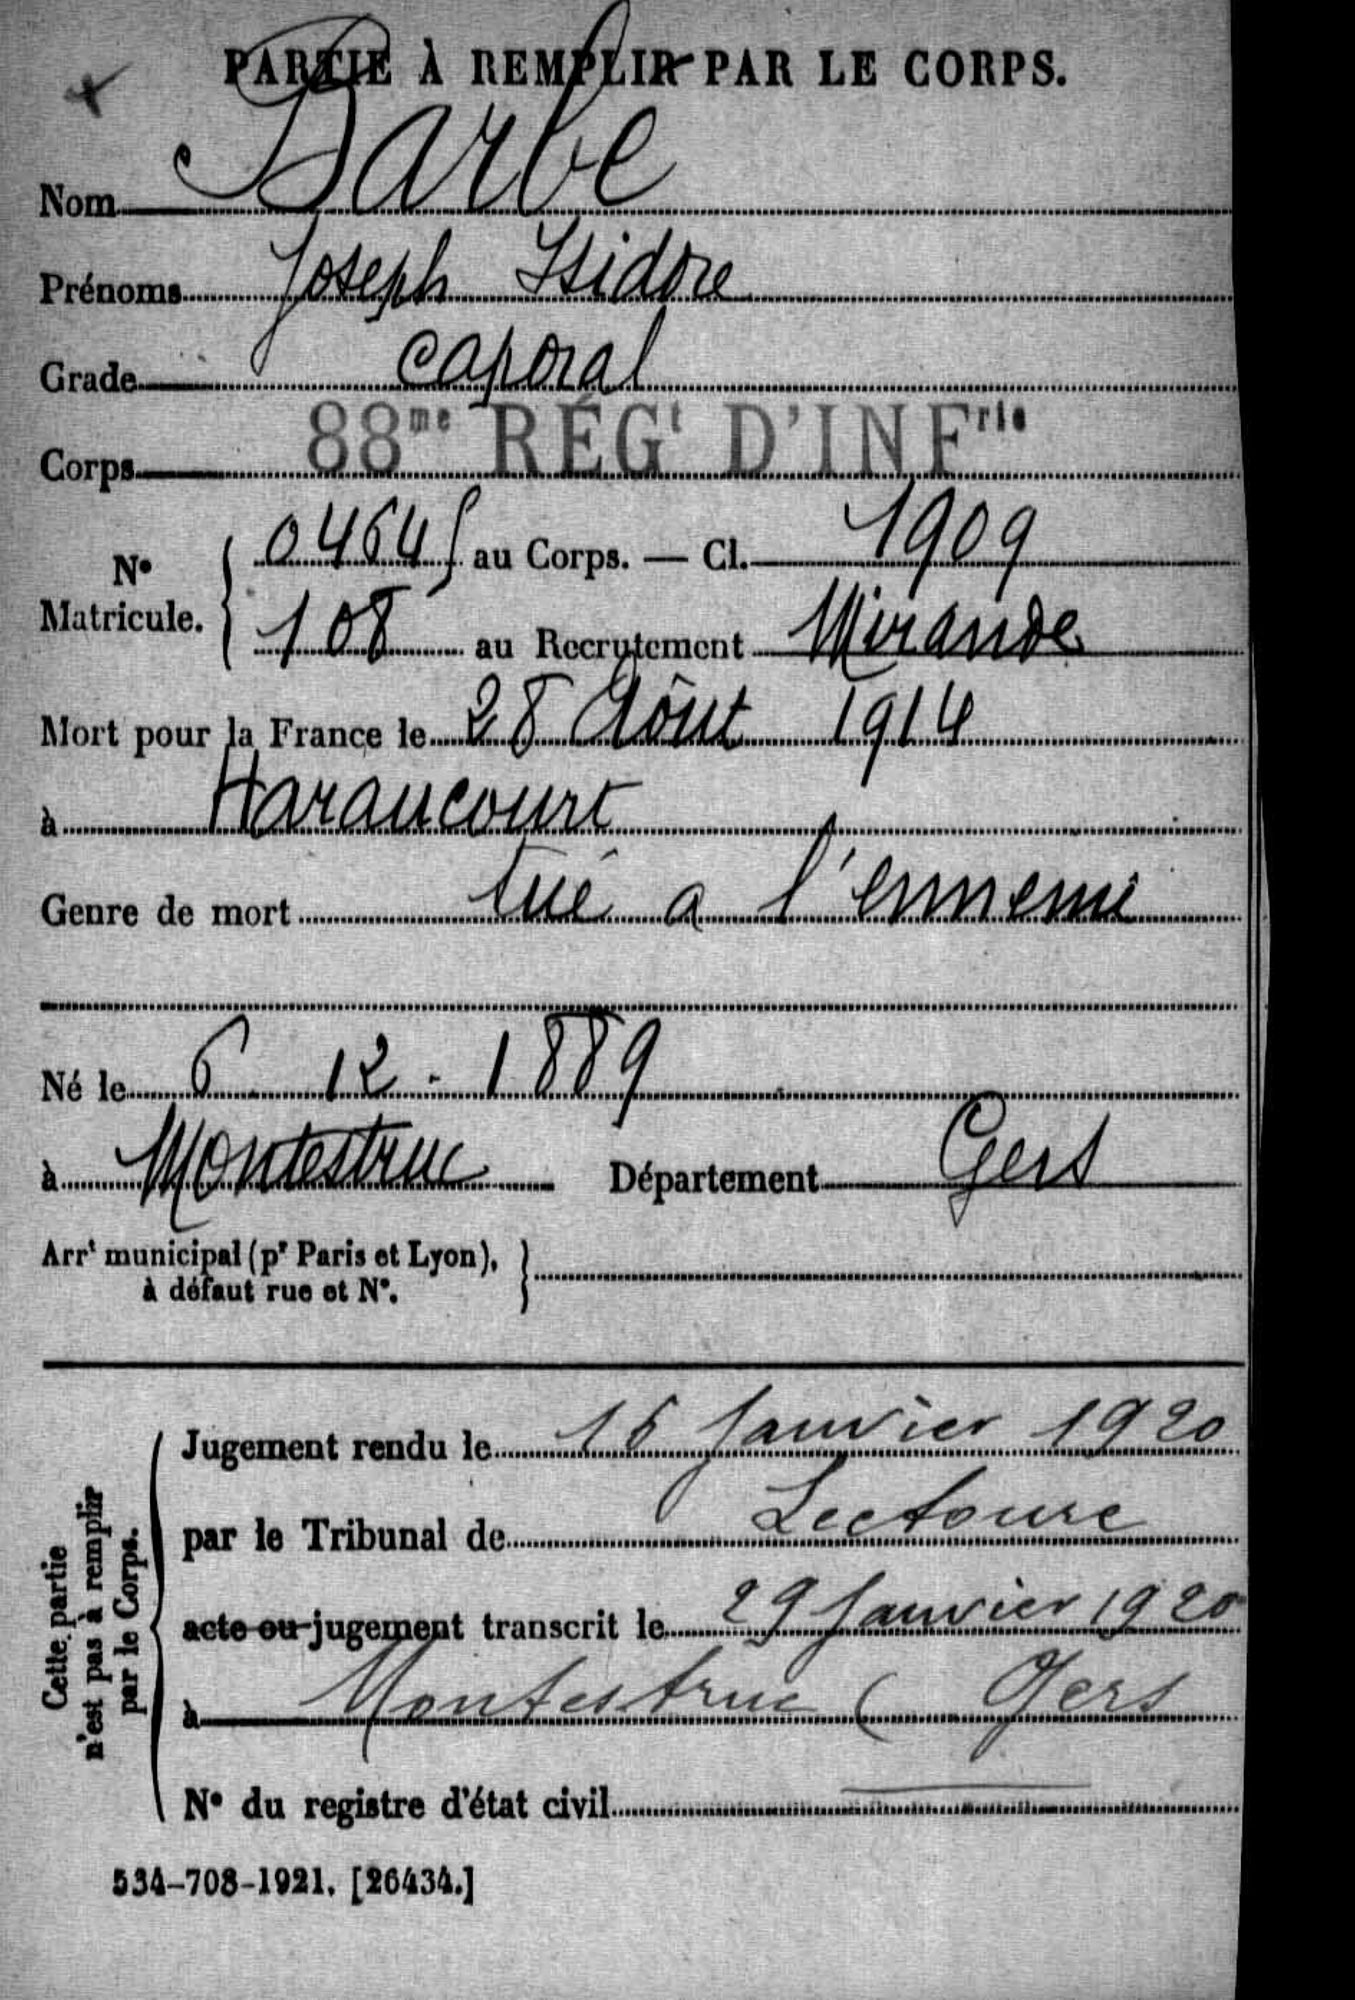 PARTIE À REMPLIR PAR LE CORPS.
Nom Barbe
Prénoms Joseph Isidore
Grade caporal
Corps 88me RÉGt D'INFrie
No Matricule. { 04645 au Corps. — Cl. 1909
108 au Recrutement Mirande
Mort pour la France le 28 Août 1914
à Haraucourt
Genre de mort tué a l'ennemi
Né le 6 12 - 1889
à Montestruc Département Gers
Arrt municipal (pr Paris et Lyon), }
à défaut rue et No.
Cette partie
n'est pas à remplir
par le Corps.
Jugement rendu le 16 Janvier 1920
par le Tribunal de Lectoure
acte ou jugement transcrit le 29 Janvier 1920
à Montestruc ( Gers
No du registre d'état civil
534-708-1921. [26434.]